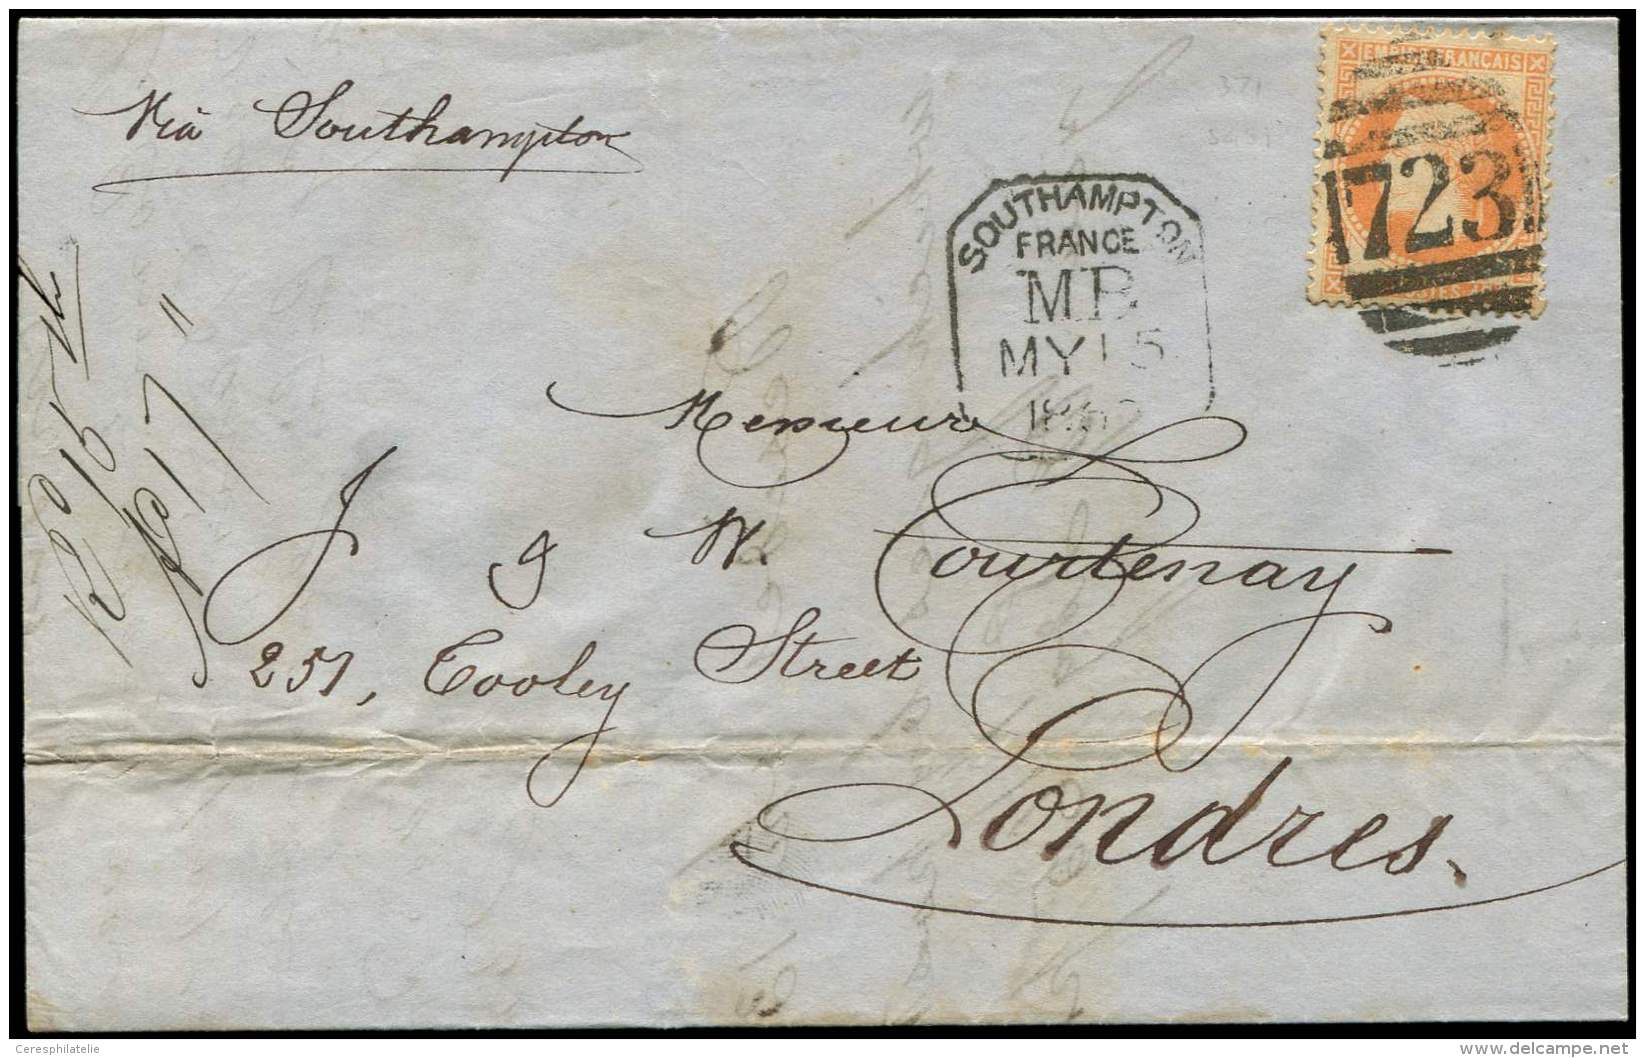 Via Southampton
EMPIRE FRANÇAIS
723
SOUTHAMPTON
FRANCE
MB
MY 15
Messieurs
J & W. Courtenay
251, Tooley Street
Londres.
17
Ceresphilatelie
www.delcampe.net